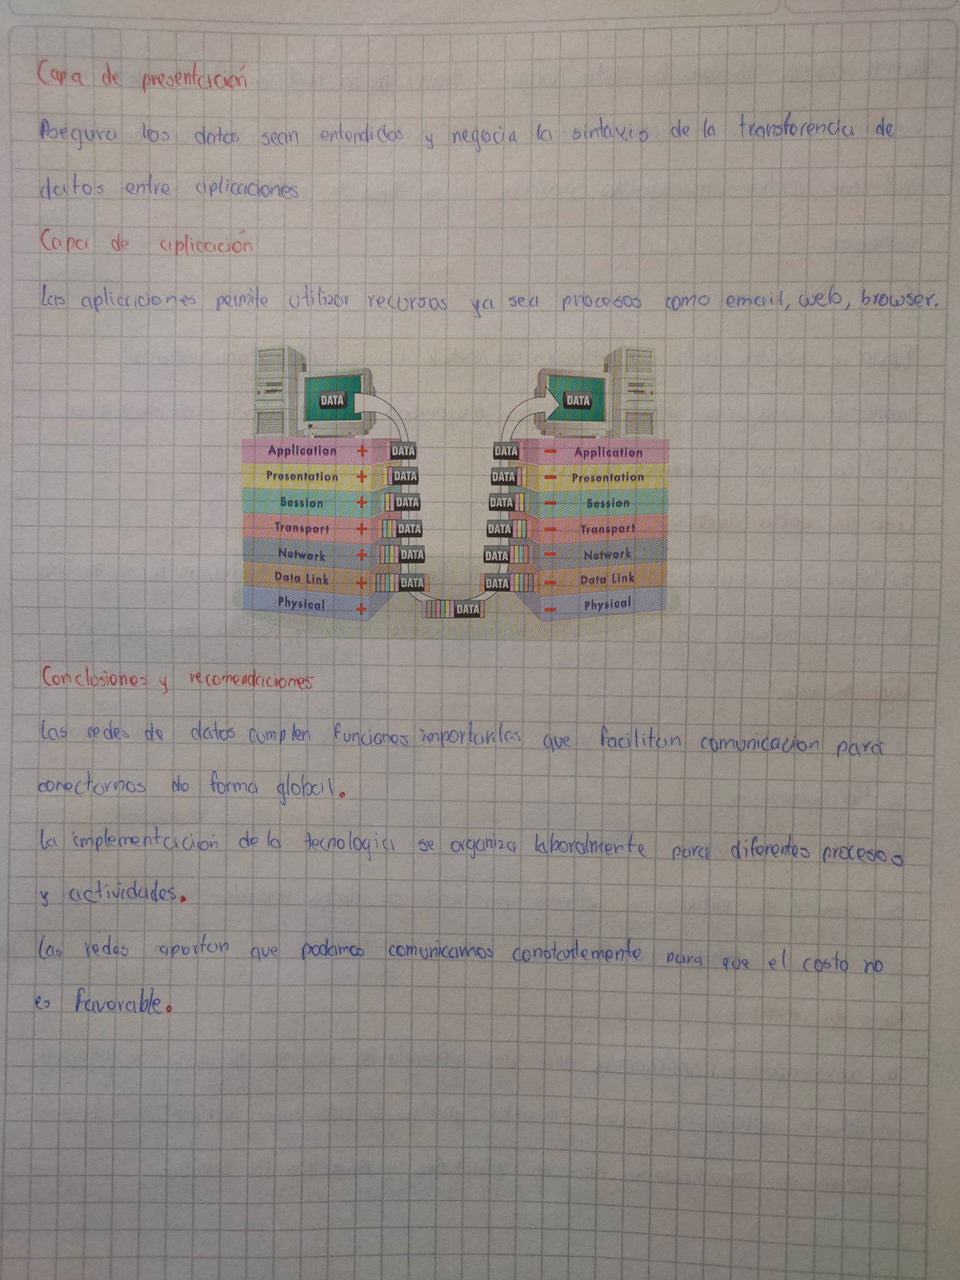 Capa de presentación
Asegura los datos sean entendidos y negocia la sintaxis de la transferencia de
datos entre aplicaciones
Capa de aplicación
Las aplicaciones permite utilizar recursos ya sea procesos como email, web, browser.
DATA DATA
Application + DATA DATA - Application
Presentation + DATA DATA - Presentation
Session + DATA DATA - Session
Transport + DATA DATA - Transport
Network + DATA DATA - Network
Data Link + DATA DATA - Data Link
Physical + DATA - Physical
Conclusiones y recomendaciones
Las redes de datos cumplen funciones importantes que facilitan comunicacion para
conectarnos de forma global.
la implementación de la tecnologia se organiza laboralmente para diferentes procesos
y actividades.
Las redes aportan que podamos comunicarnos constantemente para que el costo no
es favorable.